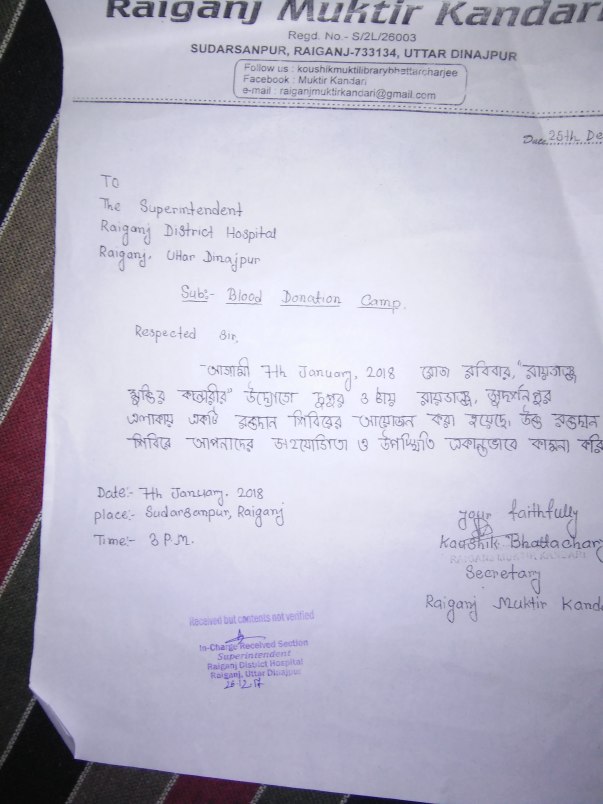 Raiganj Muktir Kandari
Regd. No.- S/2L/26003
SUDARSANPUR, RAIGANJ-733134, UTTAR DINAJPUR
Follow us : koushikmuktilibrarybhattarcharjee
Facebook : Muktir Kandari
e-mail : raiganjmuktirkandari@gmail.com
Date 26th De
To
The Superintendent
Raiganj District Hospital
Raiganj, Uttar Dinajpur
Sub:- Blood Donation Camp.
Respected Sir,
আগামী 7th January, 2018 রোজ রবিবার, "রায়গঞ্জ
মুক্তির কান্ডারীর" উদ্যোগে দুপুর ৩ টায় রায়গঞ্জে, সুদর্শনপুর
এলাকায় একটি রক্তদান শিবিরের আয়োজন করা হয়েছে। উক্ত রক্তদান
শিবিরে আপনাদের সহযোগিতা ও উপস্থিতি একান্তভাবে কামনা করি
Date:- 7th January, 2018
place:- Sudarsanpur, Raiganj
Time:- 3 P.M.
your faithfully
Kaushik Bhattachar
RAIGANJ MUKTIR KANDARI
Secretary
Raiganj Muktir Kanda
Received but contents not verified
In-Charge Received Section
Superintendent
Raiganj District Hospital
Raiganj, Uttar Dinajpur
26.12.17